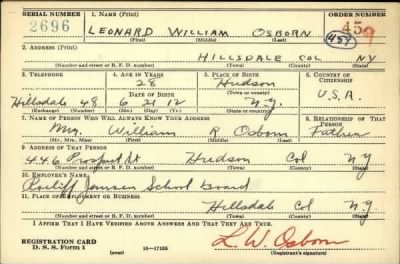 SERIAL NUMBER 1. NAME (Print) ORDER NUMBER
2696 LEONARD WILLIAM OSBORN 459
(First) (Middle) (Last) 454
2. ADDRESS (Print)
HILLSDALE COL NY
(Number and street or R. F. D. number) (Town) (County) (State)
3. TELEPHONE 4. AGE IN YEARS 5. PLACE OF BIRTH 6. COUNTRY OF CITIZENSHIP
28 Hudson
DATE OF BIRTH (Town or county)
Hillsdale 48 6 21 12 N.Y. U.S.A.
(Exchange) (Number) (Mo.) (Day) (Yr.) (State or country)
7. NAME OF PERSON WHO WILL ALWAYS KNOW YOUR ADDRESS 8. RELATIONSHIP OF THAT PERSON
William R Osborn Father
(Mr., Mrs., Miss) (First) (Middle) (Last)
9. ADDRESS OF THAT PERSON
446 Prospect St Hudson Col NY
(Number and street or R. F. D. number) (Town) (County) (State)
10. EMPLOYER'S NAME
Roeliff Jansen School board
11. PLACE OF EMPLOYMENT OR BUSINESS
Hillsdale Col NY
(Number and street or R. F. D. number) (Town) (County) (State)
I AFFIRM THAT I HAVE VERIFIED ABOVE ANSWERS AND THAT THEY ARE TRUE.
REGISTRATION CARD L. W. Osborn
D. S. S. Form 1 (over) 16-17105 (Registrant's signature)